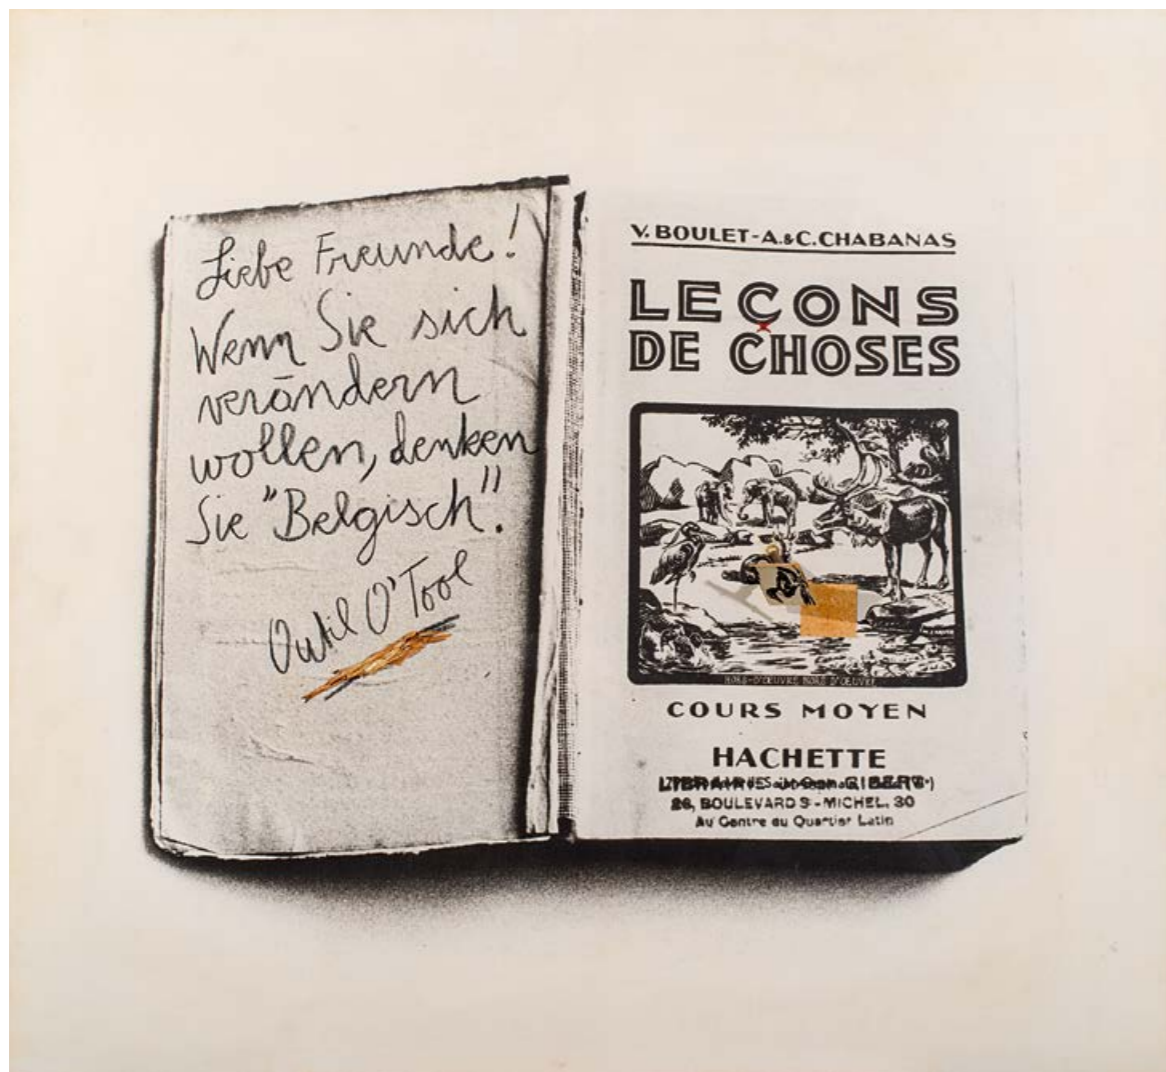 Liebe Freunde!
Wenn Sie sich
verändern
wollen, denken
Sie "Belgisch".
Outil O'Tool
V. BOULET-A. & C. CHABANAS
LEÇONS
DE CHOSES
HORS-D'ŒUVRE HORS D'ŒUVRE
COURS MOYEN
HACHETTE
LIBRAIRIE GIBERT
26, BOULEVARD S-MICHEL, 30
Au Centre du Quartier Latin